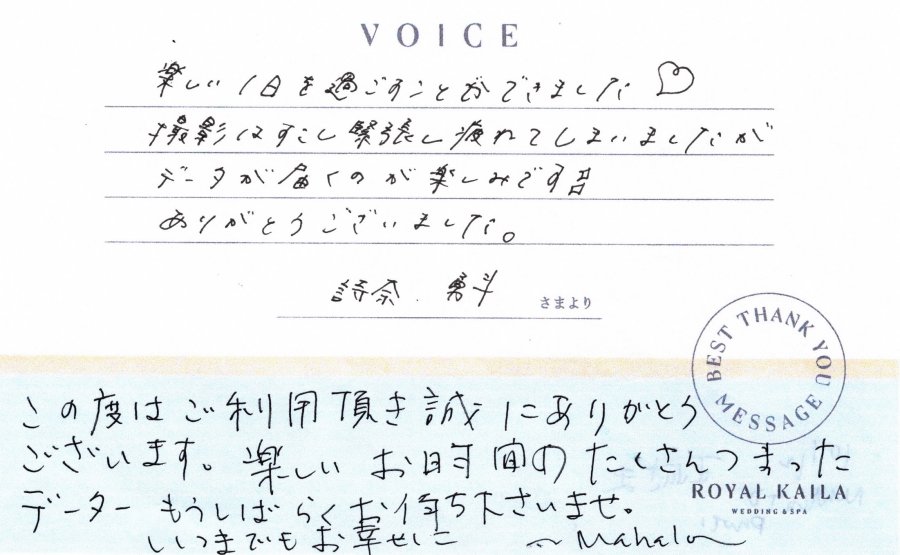 VOICE
楽しい1日を過ごすことができました♡
撮影はすこし緊張し疲れてしまいましたが
データが届くのが楽しみです!!
ありがとうございました。
詩奈 . 勇斗 さまより
BEST THANK YOU MESSAGE
この度はご利用頂き誠にありがとう
ございます。楽しいお時間のたくさんつまった
データーもうしばらくお待ち下さいませ。
ROYAL KAILA
WEDDING & SPA
いつまでもお幸せに 〜Mahalo〜